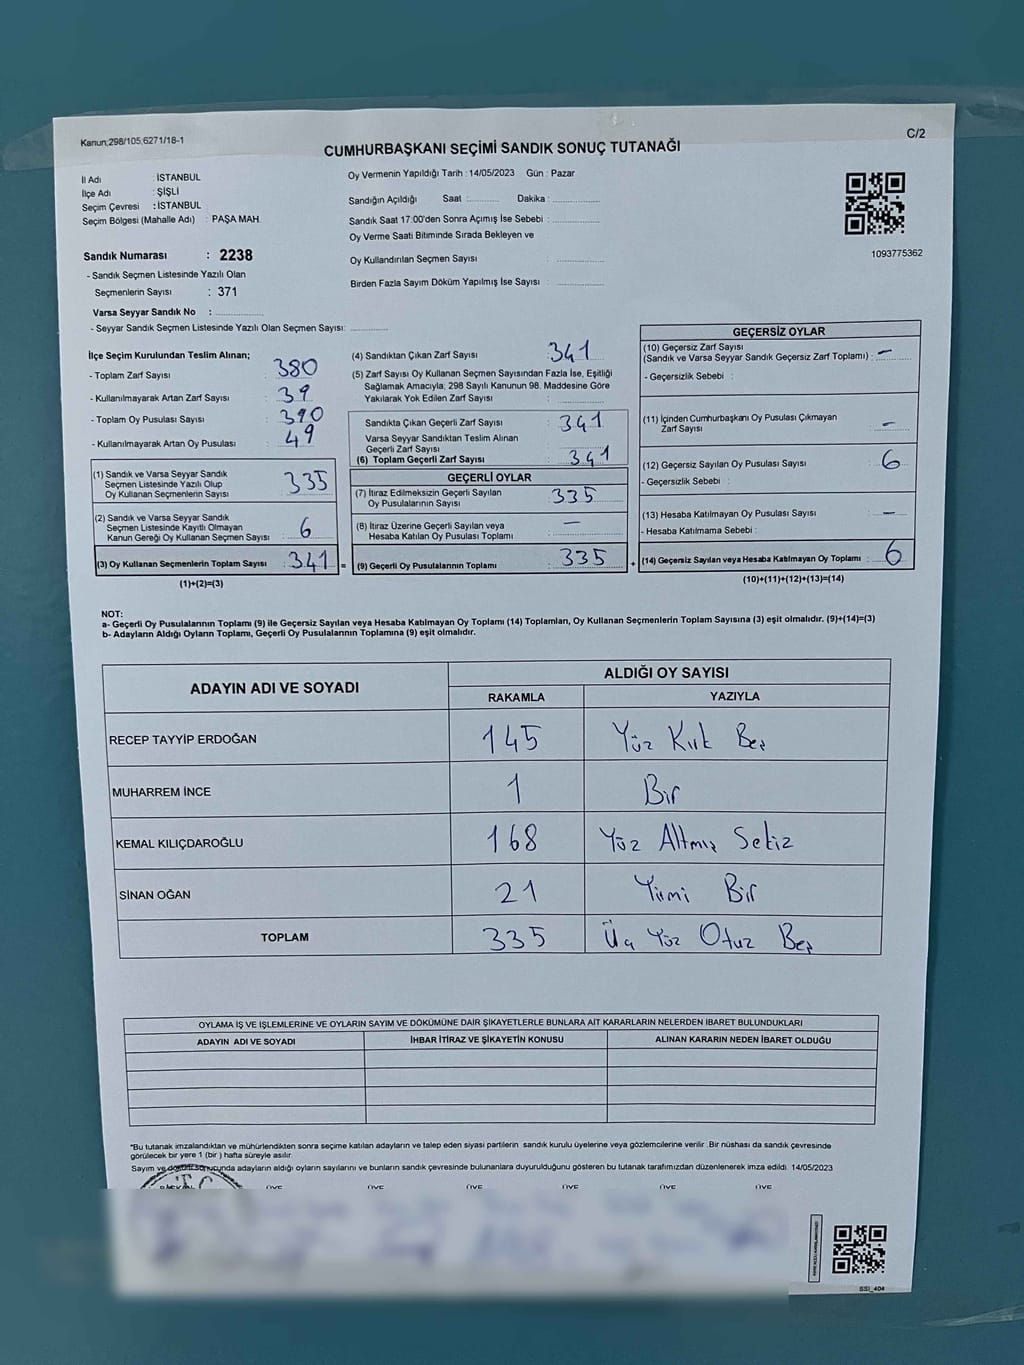 Kanun;298/105;6271/18-1
C/2
CUMHURBAŞKANI SEÇİMİ SANDIK SONUÇ TUTANAĞI
İl Adı : İSTANBUL
İlçe Adı : ŞİŞLİ
Seçim Çevresi : İSTANBUL
Seçim Bölgesi (Mahalle Adı) : PAŞA MAH.
Sandık Numarası : 2238
- Sandık Seçmen Listesinde Yazılı Olan
Seçmenlerin Sayısı : 371
Varsa Seyyar Sandık No :
- Seyyar Sandık Seçmen Listesinde Yazılı Olan Seçmen Sayısı:
Oy Vermenin Yapıldığı Tarih : 14/05/2023 Gün : Pazar
Sandığın Açıldığı Saat : Dakika :
Sandık Saat 17:00'den Sonra Açımış İse Sebebi :
Oy Verme Saati Bitiminde Sırada Bekleyen ve
Oy Kullandırılan Seçmen Sayısı :
Birden Fazla Sayım Döküm Yapılmış İse Sayısı :
1093775362
İlçe Seçim Kurulundan Teslim Alınan;
- Toplam Zarf Sayısı : 380
- Kullanılmayarak Artan Zarf Sayısı : 39
- Toplam Oy Pusulası Sayısı : 390
- Kullanılmayarak Artan Oy Pusulası : 49
(1) Sandık ve Varsa Seyyar Sandık
Seçmen Listesinde Yazılı Olup
Oy Kullanan Seçmenlerin Sayısı : 335
(2) Sandık ve Varsa Seyyar Sandık
Seçmen Listesinde Kayıtlı Olmayan
Kanun Gereği Oy Kullanan Seçmen Sayısı : 6
(3) Oy Kullanan Seçmenlerin Toplam Sayısı : 341 =
(1)+(2)=(3)
(4) Sandıktan Çıkan Zarf Sayısı : 341
(5) Zarf Sayısı Oy Kullanan Seçmen Sayısından Fazla İse, Eşitliği
Sağlamak Amacıyla, 298 Sayılı Kanunun 98. Maddesine Göre
Yakılarak Yok Edilen Zarf Sayısı :
Sandıkta Çıkan Geçerli Zarf Sayısı : 341
Varsa Seyyar Sandıktan Teslim Alınan
Geçerli Zarf Sayısı :
(6) Toplam Geçerli Zarf Sayısı : 341
GEÇERLİ OYLAR
(7) İtiraz Edilmeksizin Geçerli Sayılan
Oy Pusulalarının Sayısı : 335
(8) İtiraz Üzerine Geçerli Sayılan veya
Hesaba Katılan Oy Pusulası Toplamı : —
(9) Geçerli Oy Pusulalarının Toplamı : 335 +
GEÇERSİZ OYLAR
(10) Geçersiz Zarf Sayısı
(Sandık ve Varsa Seyyar Sandık Geçersiz Zarf Toplamı) : —
- Geçersizlik Sebebi :
(11) İçinden Cumhurbaşkanı Oy Pusulası Çıkmayan
Zarf Sayısı : —
(12) Geçersiz Sayılan Oy Pusulası Sayısı : 6
- Geçersizlik Sebebi :
(13) Hesaba Katılmayan Oy Pusulası Sayısı : —
- Hesaba Katılmama Sebebi :
(14) Geçersiz Sayılan veya Hesaba Katılmayan Oy Toplamı : 6
(10)+(11)+(12)+(13)=(14)
NOT:
a- Geçerli Oy Pusulalarının Toplamı (9) ile Geçersiz Sayılan veya Hesaba Katılmayan Oy Toplamı (14) Toplamları, Oy Kullanan Seçmenlerin Toplam Sayısına (3) eşit olmalıdır. (9)+(14)=(3)
b- Adayların Aldığı Oyların Toplamı, Geçerli Oy Pusulalarının Toplamına (9) eşit olmalıdır.
ADAYIN ADI VE SOYADI ALDIĞI OY SAYISI
RAKAMLA YAZIYLA
RECEP TAYYİP ERDOĞAN 145 Yüz Kırk Beş
MUHARREM İNCE 1 Bir
KEMAL KILIÇDAROĞLU 168 Yüz Altmış Sekiz
SİNAN OĞAN 21 Yirmi Bir
TOPLAM 335 Üç Yüz Otuz Beş
OYLAMA İŞ VE İŞLEMLERİNE VE OYLARIN SAYIM VE DÖKÜMÜNE DAİR ŞİKAYETLERLE BUNLARA AİT KARARLARIN NELERDEN İBARET BULUNDUKLARI
ADAYIN ADI VE SOYADI İHBAR İTİRAZ VE ŞİKAYETİN KONUSU ALINAN KARARIN NEDEN İBARET OLDUĞU
*Bu tutanak imzalandıktan ve mühürlendikten sonra seçime katılan adayların ve talep eden siyasi partilerin sandık kurulu üyelerine veya gözlemcilerine verilir .Bir nüshası da sandık çevresinde
görülecek bir yere 1 (bir ) hafta süreyle asılır.
Sayım ve döküm sonucunda adayların aldığı oyların sayılarını ve bunların sandık çevresinde bulunanlara duyurulduğunu gösteren bu tutanak tarafımızdan düzenlenerek imza edildi. 14/05/2023
T.C.
BAŞKAN ÜYE ÜYE ÜYE ÜYE ÜYE ÜYE
SSI_404